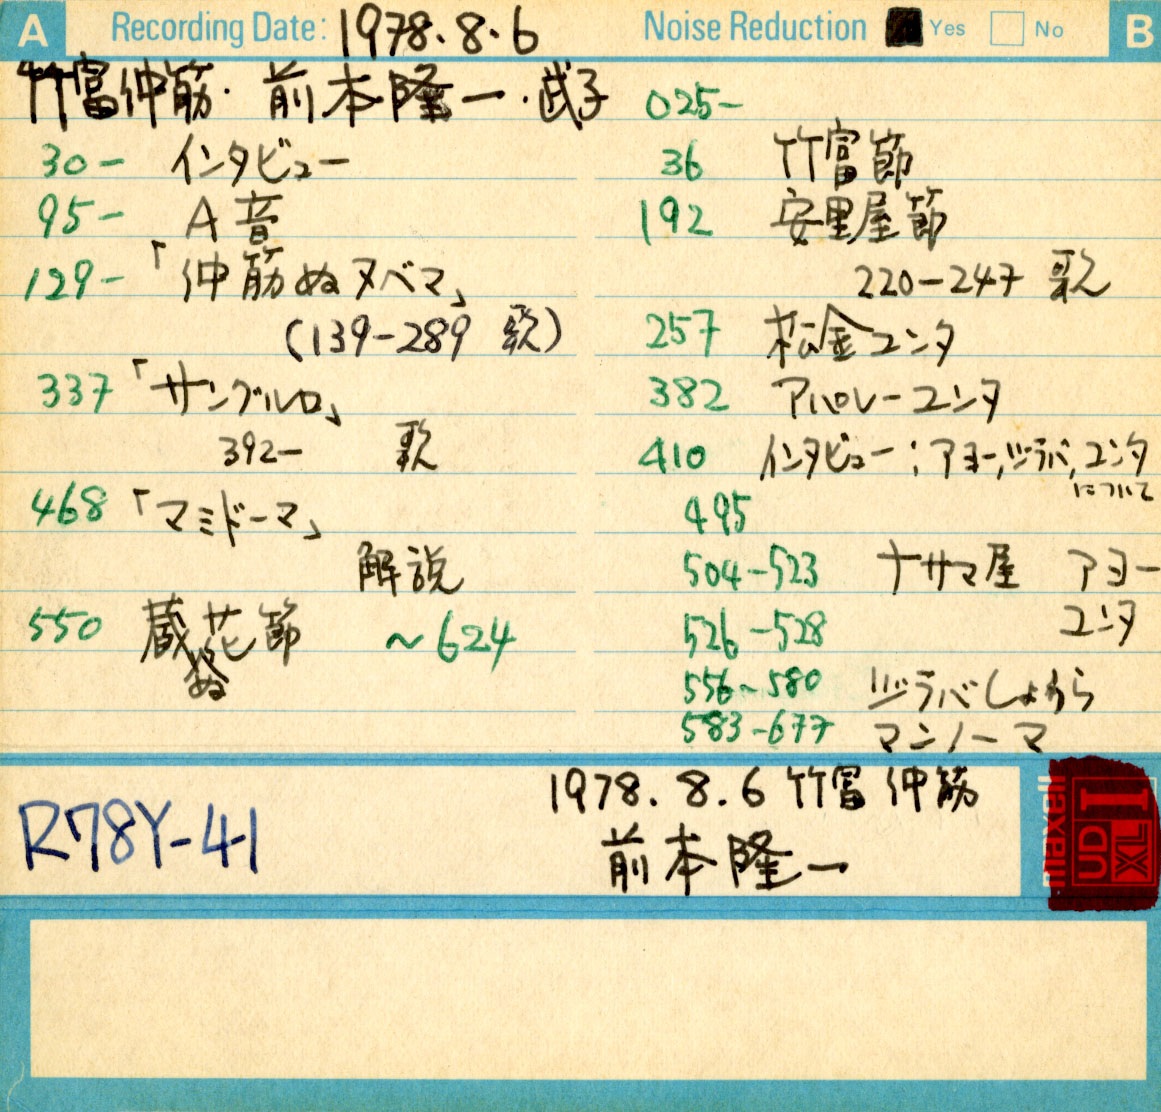 A Recording Date: 1978.8.6
竹富仲筋・前本隆一・武子
30- インタビュー
95- A音
129- 「仲筋ぬヌベマ」
(139-289 歌)
337 「サングルロ」
392- 歌
468 「マミドーマ」
解説
550 蔵ぬ花節 ~624
Noise Reduction Yes No B
025-
36 竹富節
192 安里屋節
220-247 歌
257 松金ユンタ
382 アパレーユンタ
410 インタビュー:アヨー,ジラバ,ユンタ
について
495
504-523 ナサマ屋 アヨー
526-528 ユンタ
556-580 ジラバしょから
583-677 マンノーマ
R78Y-41
1978.8.6 竹富 仲筋
前本隆一
maxell UD XL I